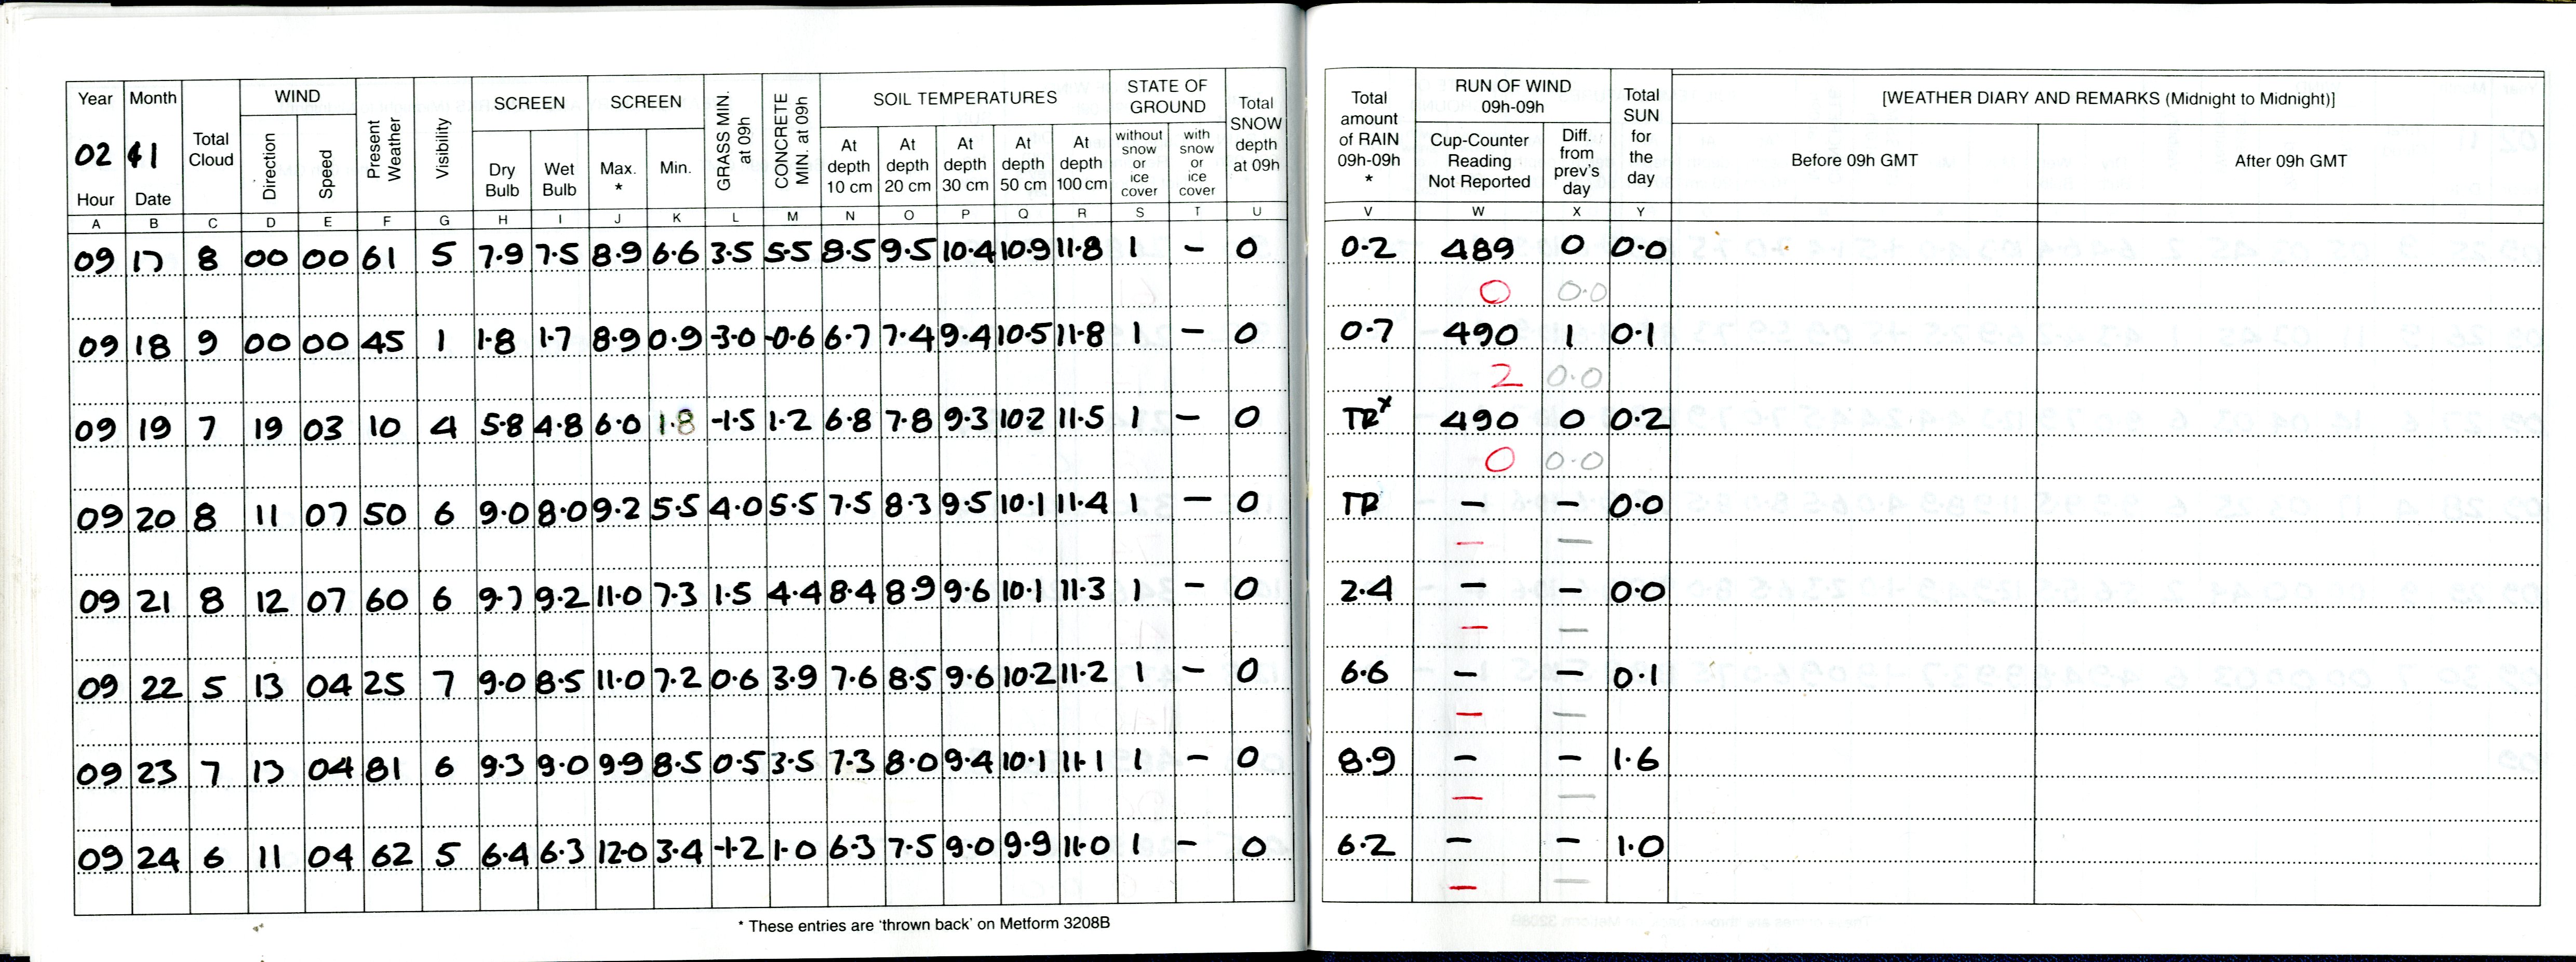 Year Month Total Cloud WIND Present Weather Visibility SCREEN SCREEN GRASS MIN. at 09h CONCRETE MIN. at 09h SOIL TEMPERATURES STATE OF GROUND Total SNOW depth at 09h Total amount of RAIN 09h-09h * RUN OF WIND 09h-09h Total SUN for the day [WEATHER DIARY AND REMARKS (Midnight to Midnight)]
02 41 Direction Speed Dry Bulb Wet Bulb Max. * Min. At depth 10 cm At depth 20 cm At depth 30 cm At depth 50 cm At depth 100 cm without snow or ice cover with snow or ice cover Cup-Counter Reading Not Reported Diff. from prev's day Before 09h GMT After 09h GMT
Hour Date
A B C D E F G H I J K L M N O P Q R S T U V W X Y
09 17 8 00 00 61 5 7.9 7.5 8.9 6.6 3.5 5.5 8.5 9.5 10.4 10.9 11.8 1 – 0 0.2 489 0 0.0
0 0.0
09 18 9 00 00 45 1 1.8 1.7 8.9 0.9 -3.0 -0.6 6.7 7.4 9.4 10.5 11.8 1 – 0 0.7 490 1 0.1
2 0.0
09 19 7 19 03 10 4 5.8 4.8 6.0 1.8 -1.5 1.2 6.8 7.8 9.3 10.2 11.5 1 – 0 TR* 490 0 0.2
0 0.0
09 20 8 11 07 50 6 9.0 8.0 9.2 5.5 4.0 5.5 7.5 8.3 9.5 10.1 11.4 1 – 0 TR – – 0.0
– –
09 21 8 12 07 60 6 9.7 9.2 11.0 7.3 1.5 4.4 8.4 8.9 9.6 10.1 11.3 1 – 0 2.4 – – 0.0
– –
09 22 5 13 04 25 7 9.0 8.5 11.0 7.2 0.6 3.9 7.6 8.5 9.6 10.2 11.2 1 – 0 6.6 – – 0.1
– –
09 23 7 13 04 81 6 9.3 9.0 9.9 8.5 0.5 3.5 7.3 8.0 9.4 10.1 11.1 1 – 0 8.9 – – 1.6
– –
09 24 6 11 04 62 5 6.4 6.3 12.0 3.4 -1.2 1.0 6.3 7.5 9.0 9.9 11.0 1 – 0 6.2 – – 1.0
– –
* These entries are 'thrown back' on Metform 3208B